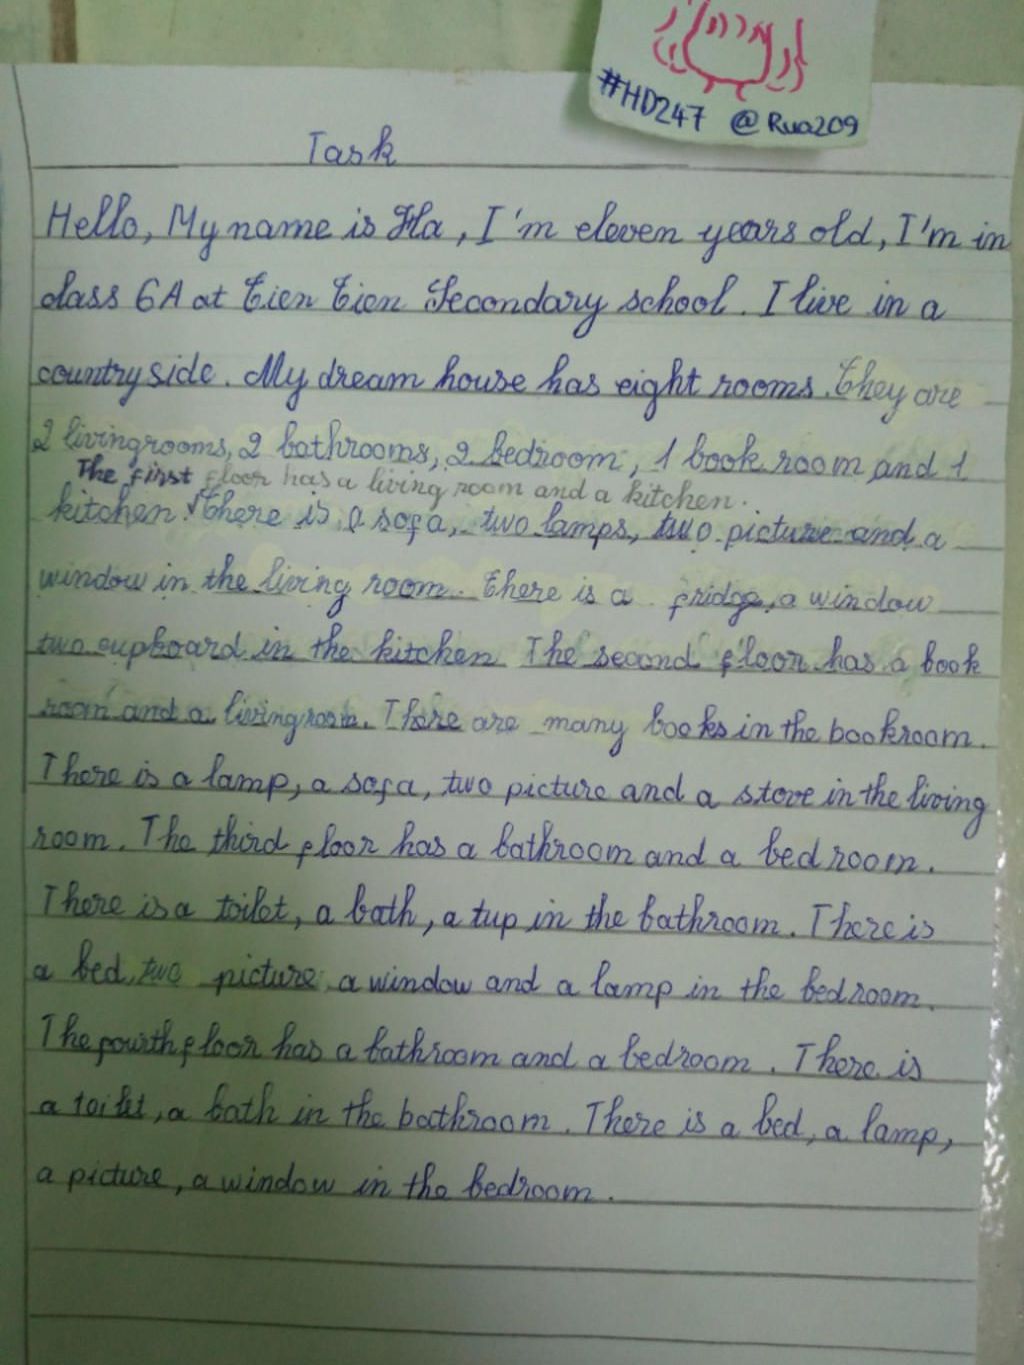 #HD247 @Rua209
Task
Hello, My name is Ha, I'm eleven years old, I'm in
class 6A at Tien Tien Secondary school. I live in a
country side. My dream house has eight rooms. They are
2 livingrooms, 2 bathrooms, 2 bedroom, 1 book room and 1
The first floor has a living room and a kitchen.
kitchen. There is a sofa, two lamps, two picture and a
window in the living room. There is a fridge, a window
two cupboard in the kitchen The second floor has a book
room and a livingroom. There are many books in the bookroom.
There is a lamp, a sofa, two picture and a stove in the living
room. The third floor has a bathroom and a bedroom.
There is a toilet, a bath, a tup in the bathroom. There is
a bed, two picture, a window and a lamp in the bedroom.
The fourth floor has a bathroom and a bedroom. There is
a toilet, a bath in the bathroom. There is a bed, a lamp,
a picture, a window in the bedroom.